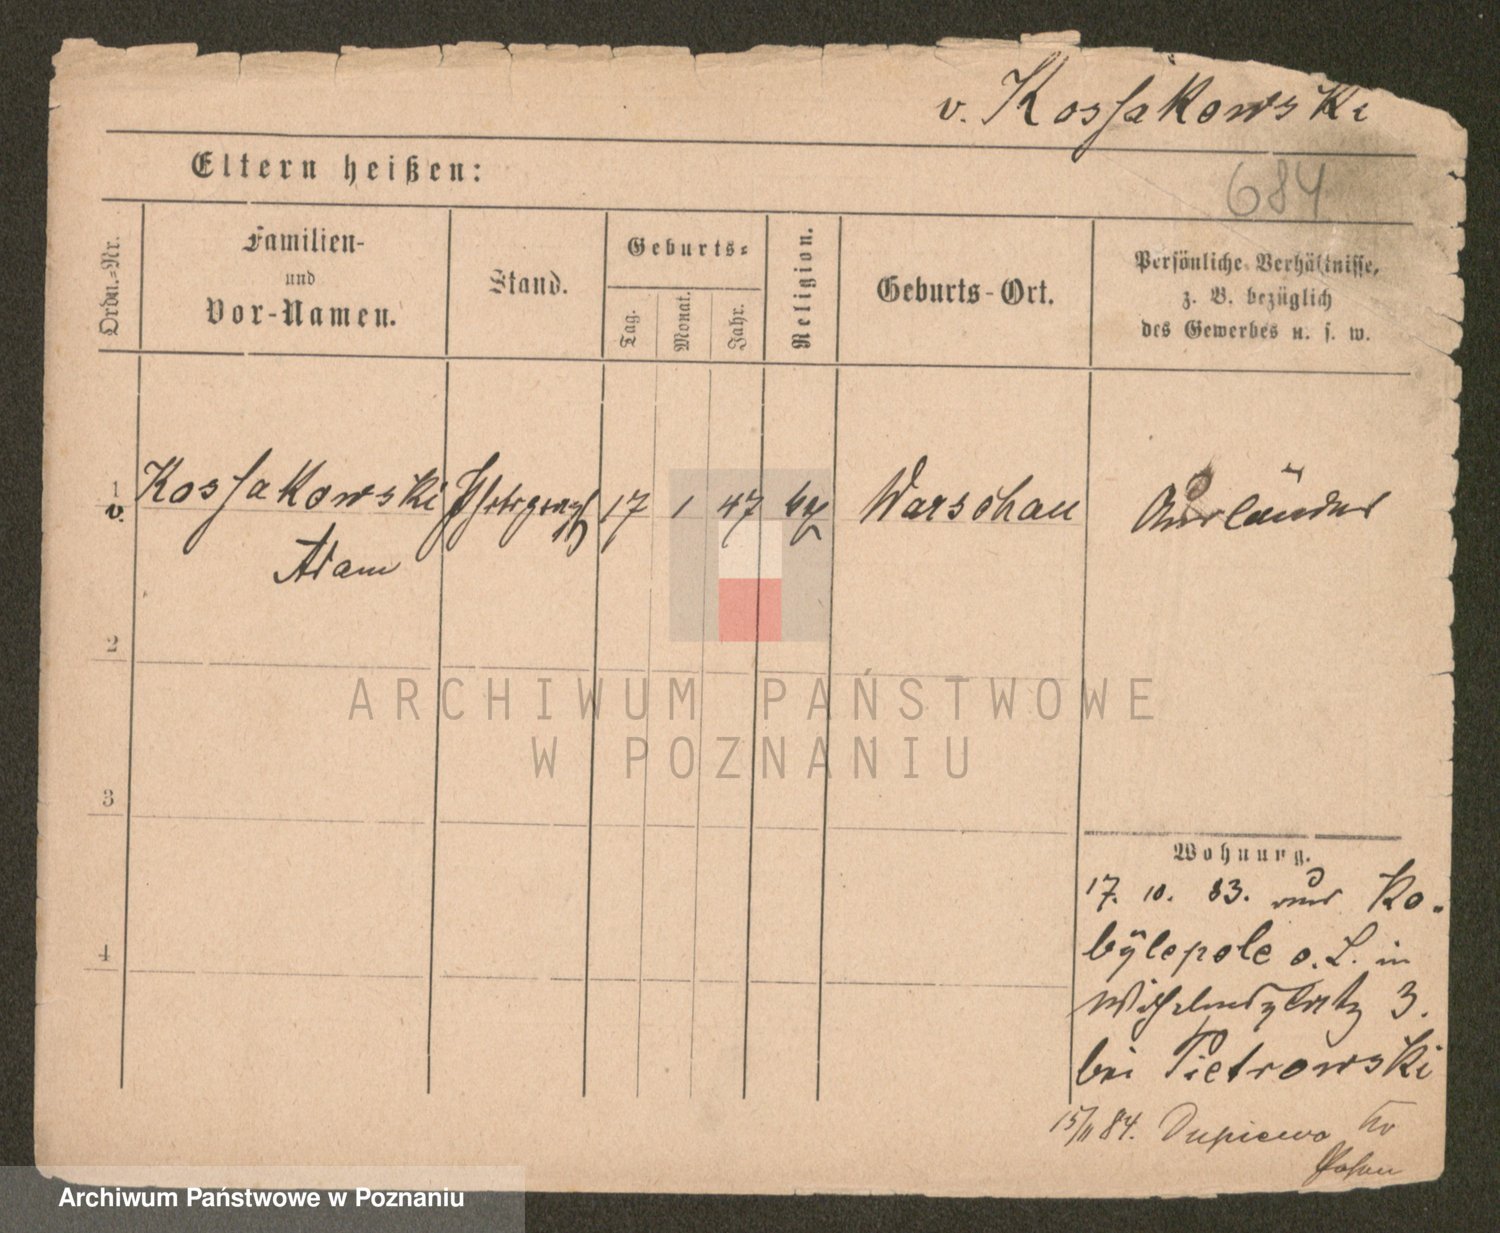 v. Kossakowski
Eltern heißen:
684
Ordn.-Nr.
Familien-
und
Vor-Namen.
Stand.
Geburts-
Tag.
Monat.
Jahr.
Religion.
Geburts-Ort.
Persönliche Verhältnisse,
z. B. bezüglich
des Gewerbes u. s. w.
1
v. Kossakowski 17 1 47 kth Warschau Ausländer
Adam
2
ARCHIWUM PAŃSTWOWE
W POZNANIU
3
Wohnung.
17. 10. 83. aus Ko-
bylepole o. L. in
Wilhelmsplatz 3.
bei Pietrowski
4
15/11 84. Dupiewo Kr
Posen
Archiwum Państwowe w Poznaniu